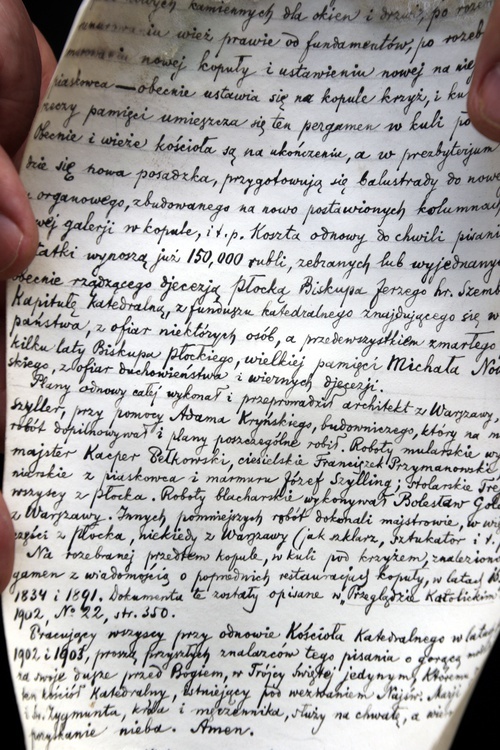 kamiennych dla okien i drzwi, po
wież prawie od fundamentów, po rozeb
nowej kopuły i ustawieniu nowej na nie
piaskowca — obecnie ustawia się na kopule krzyż, i ku
rzeczy pamięci umieszcza się ten pergamen w kuli po
Obecnie i wieże kościoła są na ukończeniu, a w prezbyterjum
dzie się nowa posadzka, przygotowują się balustrady do nowe
organowego, zbudowanego na nowo postawionych kolumnach
wej galerji w kopule, i t. p. Koszta odnowy do chwili pisani
tatki wynoszą już 150,000 rubli, zebranych lub wyjednany
obecnie rządzącego djecezją Płocką Biskupa Jerzego hr. Szemb
Kapitułę katedralną, z funduszu katedralnego znajdującego się w
państwa, z ofiar niektórych osób, a przedewszystkiem zmarłego
kilku laty Biskupa Płockiego, wielkiej pamięci Michała No
skiego, z ofiar duchowieństwa i wiernych djecezji.
Plany odnowy całej wykonał i przeprowadził architekt z Warszawy,
Szyller, przy pomocy Adama Kryńskiego, budowniczego, który na m
robót dopilnowywał i plany poszczególne robił. Roboty mularskie wy
majster Kacper Petkowski, ciesielskie Franciszek Przymanowski
nierskie z piaskowca i marmuru Józef Szylling; stolarskie
wszyscy z Płocka. Roboty blacharskie wykonywał Bolesław Gol
z Warszawy. Innych pomniejszych robót dokonali majstrowie, w
części z Płocka, niekiedy z Warszawy (jak szklarz, sztukator i t.
Na rozebranej przedtem kopule, w kuli pod krzyżem, znaleziono
gamen z wiadomością o poprzednich restauracjach kopuły, w latach
1834 i 1891. Dokumenta te zostały opisane w „Przeglądzie Katolickim"
1902, No 22, str. 350.
Pracujący wszyscy przy odnowie Kościoła Katedralnego w latach
1902 i 1903, proszą przyszłych znalazców tego pisania o gorącą
za swoje dusze przed Bogiem, w Trójcy Świętej jedynym, któremu
ten kościół Katedralny, istniejący pod wezwaniem Najśw. Marji
i św. Zygmunta, króla i męczennika, służy na chwałę, a
pozyskanie nieba. Amen.